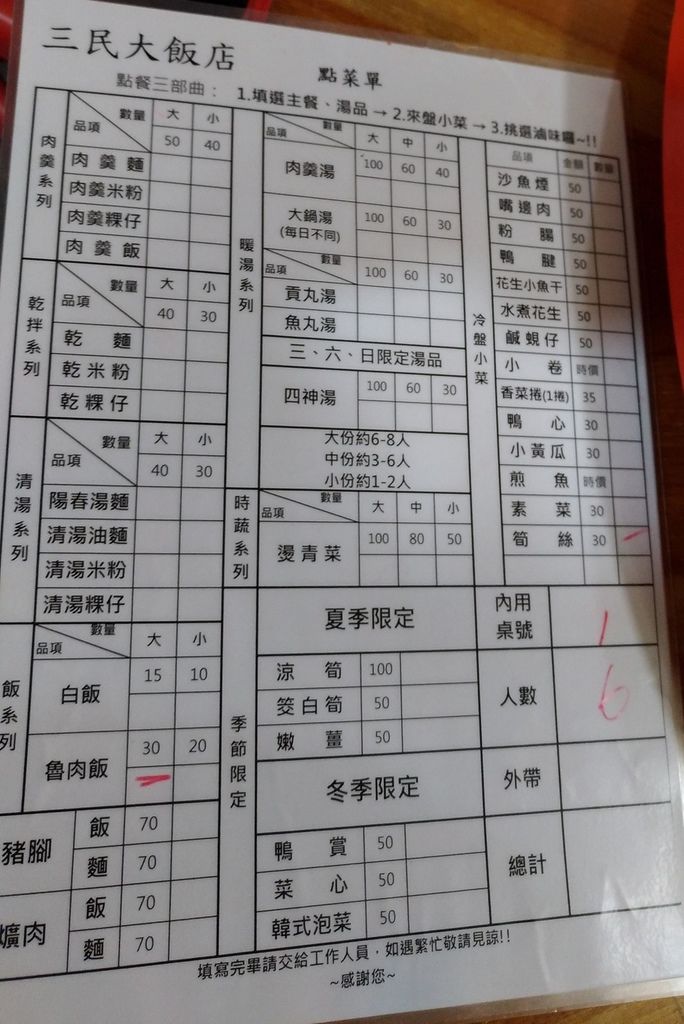 三民大飯店
點菜單
點餐三部曲： 1.填選主餐、湯品 → 2.來盤小菜 → 3.挑選滷味囉~!!
肉羹系列
品項 數量 大 小
50 40
肉羹麵
肉羹米粉
肉羹粿仔
肉羹飯
乾拌系列
品項 數量 大 小
40 30
乾麵
乾米粉
乾粿仔
清湯系列
品項 數量 大 小
40 30
陽春湯麵
清湯油麵
清湯米粉
清湯粿仔
飯系列
品項 數量 大 小
白飯 15 10
魯肉飯 30 20
豬腳 飯 70
麵 70
爌肉 飯 70
麵 70
暖湯系列
品項 數量 大 中 小
肉羹湯 100 60 40
大鍋湯 100 60 30
(每日不同)
品項 數量 100 60 30
貢丸湯
魚丸湯
三、六、日限定湯品
四神湯 100 60 30
大份約6-8人
中份約3-6人
小份約1-2人
時蔬系列
品項 數量 大 中 小
燙青菜 100 80 50
季節限定
夏季限定
涼筍 100
筊白筍 50
嫩薑 50
冬季限定
鴨賞 50
菜心 50
韓式泡菜 50
冷盤小菜
品項 金額 數量
沙魚煙 50
嘴邊肉 50
粉腸 50
鴨腱 50
花生小魚干 50
水煮花生 50
鹹蜆仔 50
小卷 時價
香菜捲(1捲) 35
鴨心 30
小黃瓜 30
煎魚 時價
素菜 30
筍絲 30
內用桌號 1
人數 6
外帶
總計
填寫完畢請交給工作人員，如遇繁忙敬請見諒!!
~感謝您~